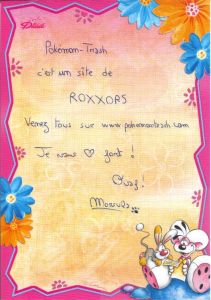 Diddl
Pokémon-Trash
c'est un site de
ROXXORS
Venez tous sur www.pokemontrash.com
Je vous ♡ fort !
Ouaf !